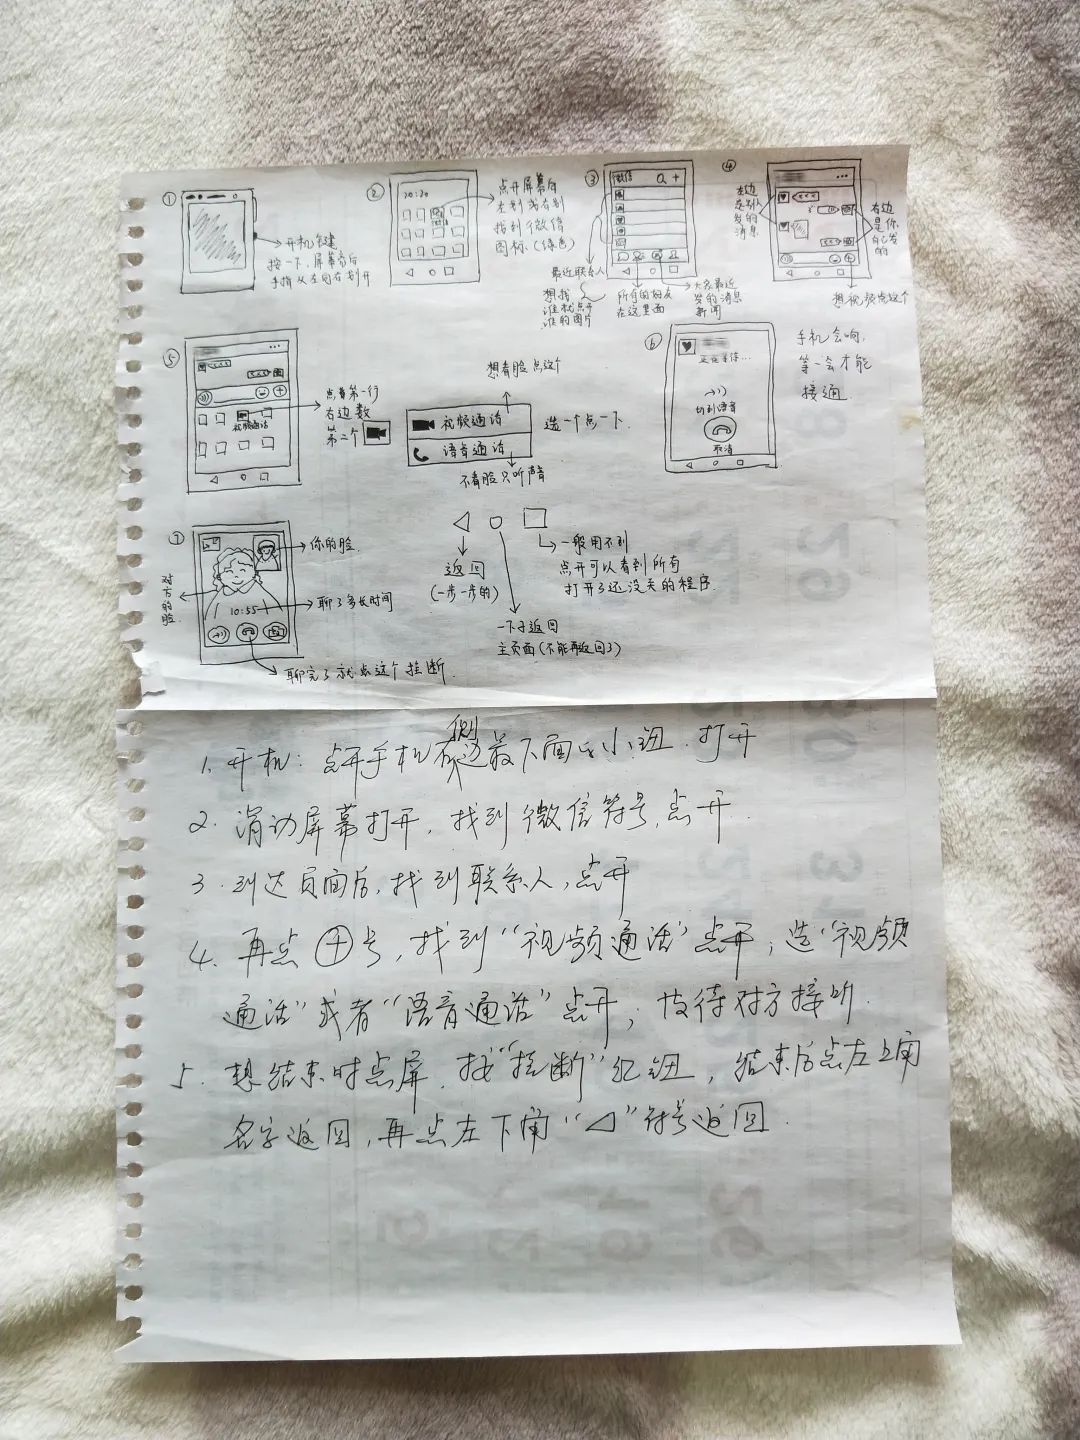 ①
开机键
按一下，屏幕亮后
手指从左向右划开
②
10:20
点开屏幕后
左划或右划
找到微信
图标（绿色）
③
微信
最近联系人
想找
谁就点开
谁的图片
所有的朋友
在这里面
大家最近
发的消息
新闻
④
左边
是别人
发的
消息
右边
是你
自己发
的
想视频点这个
⑤
视频通话
点着第一行
右边数
第二个
想看脸点这个
视频通话
语音通话
选一个点一下
不看脸只听声音
⑥
正在等待...
切到语音
取消
手机会响，
等一会才能
接通
7
你的脸
对方的脸
10:55
聊了多长时间
聊完了就点这个挂断.
返回
(一步一步的)
一下子返回
主页面(不能再返回了)
一般用不到
点开可以看到所有
打开了还没关的程序.
1. 开机：点开手机侧边最下面的小钮.打开
2. 滑动屏幕打开，找到微信符号，点开.
3. 到达页面后，找到联系人，点开
4. 再点⊕号，找到“视频通话”点开，选“视频
通话”或者“语音通话”点开，等待对方接听.
5. 想结束时点屏，按“挂断”红钮，结束后点左上角
名字返回，再点左下角“◁”符号返回.